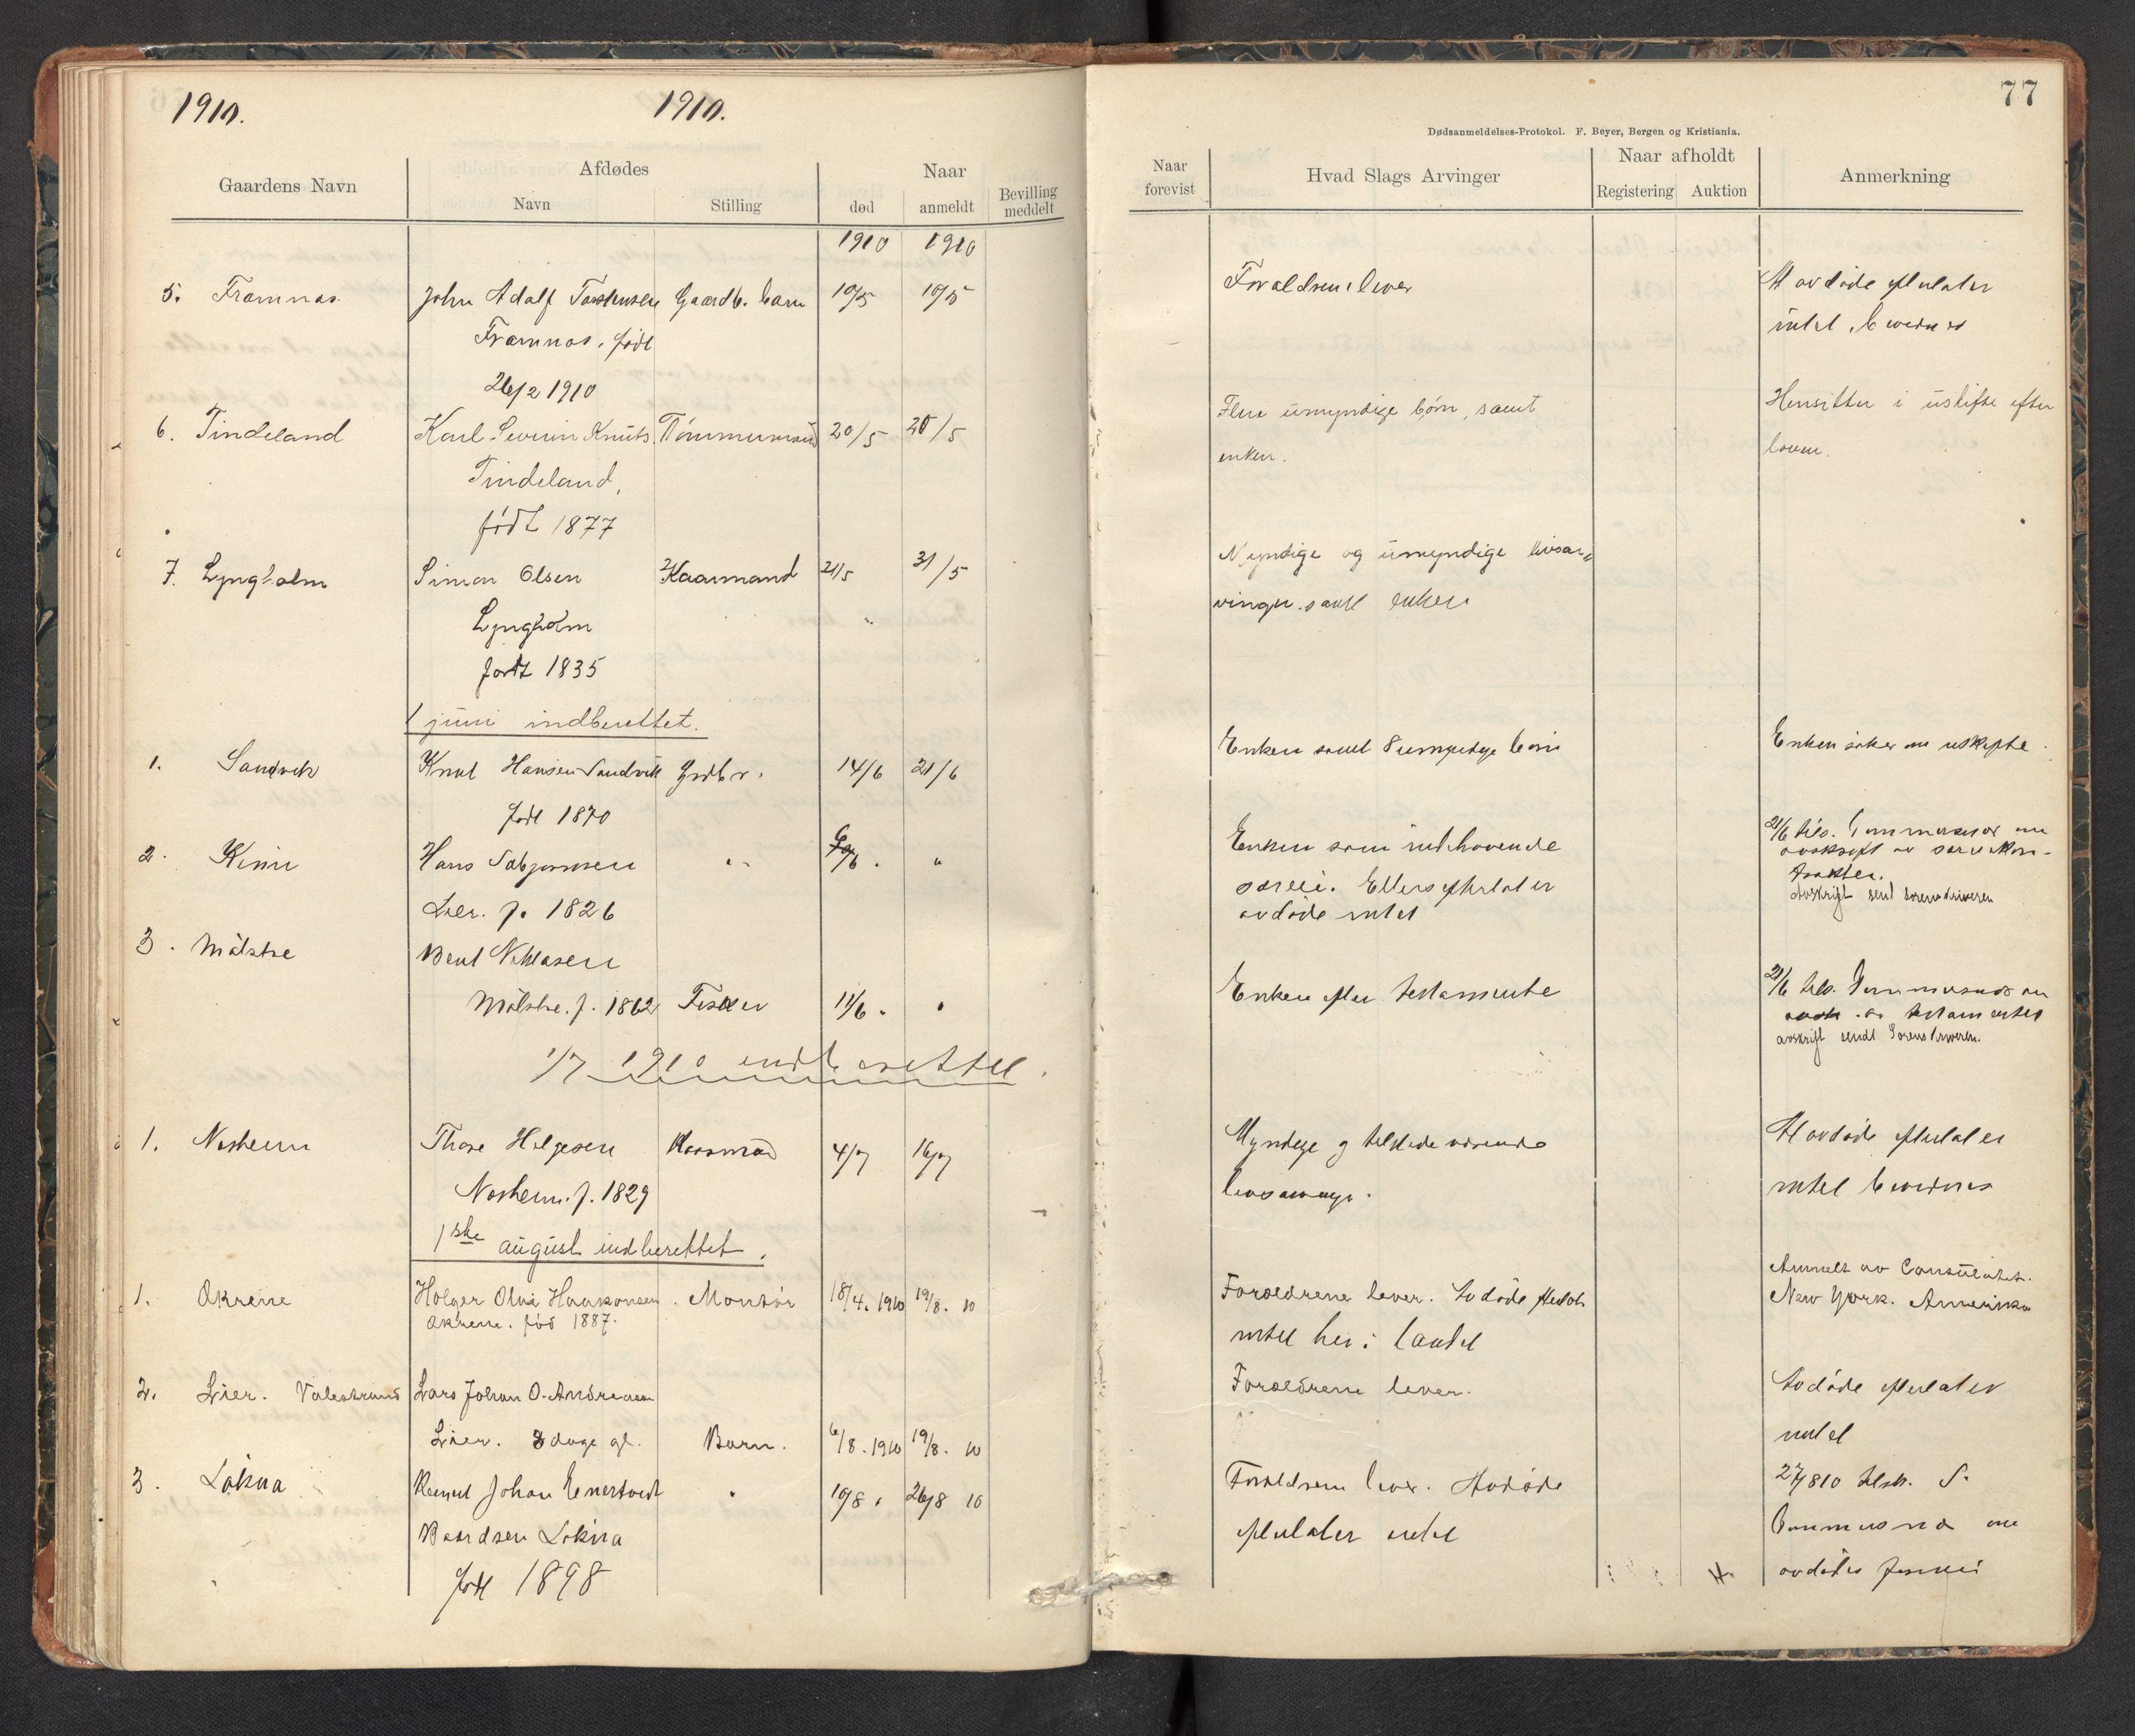 1910.
1910.
Gaardens Navn
Afdødes
Navn
Stilling
Naar
død
anmeldt
Bevilling
meddelt
1910 1910
5. Framnas. John Adolf Gaardb. barn 10/5 10/5
Framnas, født
26/2 1910
6. Tindeland Karl Severin Knuts. Tømmermand 20/5 28/5
Tindeland,
født 1877
7. Lyngholm Simon Olsen Kaarmand 21/5 31/5
Lyngholm
født 1835
1 juni indberettet.
1. Sandvik Knut Hansen Sandvik Grdbr. 14/6 21/6
født 1870
2. Kinn Hans "
Lier. f. 1826
3. Målstre Bent
Målstre. f. 1862 Fisker 11/6 "
1/7 1910 indberettet.
1. Nesheim Thore Helgesen Kaarmand 4/7 16/7
Nesheim. f. 1829
1ste august indberettet.
1. Økrene Holger Olai Haakonsen Montör 18/4. 1910 19/8. 10
Økrene. fød 1887.
2. Lier. Valestrand Lars Johan O. Andreassen
Lier. 8 dage gl. Barn. 6/8. 1910 19/8. 10
3. Løkna Johan " 10/8 " 26/8 10
Baardsen Løkna
født 1898
77
Dødsanmeldelses-Protokol. F. Beyer, Bergen og Kristiania.
Naar
forevist
Hvad Slags Arvinger
Naar afholdt
Registering
Auktion
Anmerkning
Forældrene lever
Avdøde efterlater
intet, bevidnes
Flere umyndige børn, samt
enken.
Hensitter i uskifte efter
loven.
Myndige og umyndige livsar-
vinger samt enken
Enken samt 8 umyndige børn
Enken søker om uskifte.
Enken som indehavende
særeie. Ellers efterlater
avdøde intet
21/6 tils. om
avskrift av
Avskrift sent sorenskriveren
Enken efter testamente
21/6 tils. om
avsk. av testamentet
avskrift sendt Sorenskriveren.
Myndige og tilstedeværende
livsarvinger.
Avdøde efterlater
intet bevidnes
Forældrene lever. Avdøde efterlot
intet her i landet
Anmelt av Consulatet.
New York. Amerika
Forældrene lever.
Avdøde efterlater
intet
Forældrene lever. Avdøde
efterlater intet
27/8 10 tilsk. S.
om
avdødes